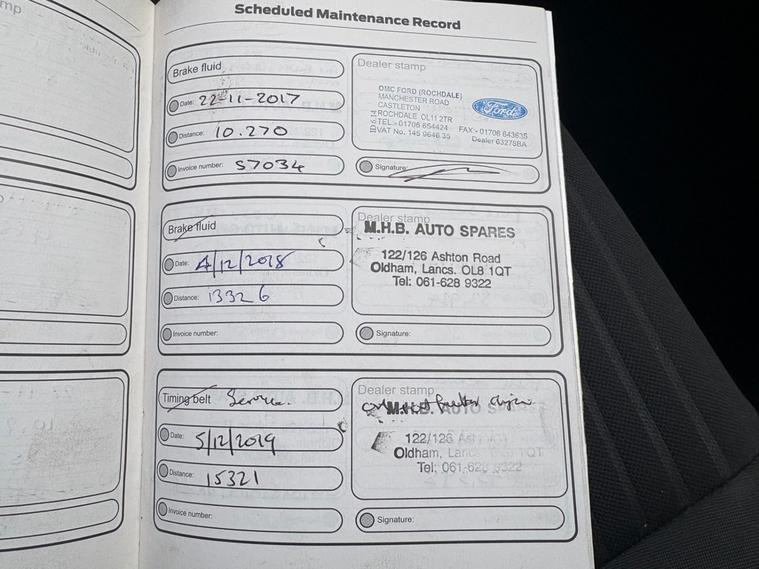 Scheduled Maintenance Record
Brake fluid
Date: 22-11-2017
Distance: 10.270
Invoice number: 57034
Dealer stamp
OMC FORD (ROCHDALE)
MANCHESTER ROAD
CASTLETON
ROCHDALE OL11 2TR
TEL - 01706 654424 FAX - 01706 643635
VAT No. 145 9646 35 Dealer 63278BA
Ford
Signature:
Brake fluid
Date: 4/12/2018
Distance: 13326
Invoice number:
Dealer stamp
M.H.B. AUTO SPARES
122/126 Ashton Road
Oldham, Lancs. OL8 1QT
Tel: 061-628 9322
Signature:
Timing belt Service.
Date: 5/12/2019
Distance: 15321
Invoice number:
Dealer stamp
M.H.B. AUTO
122/126 Ash
Oldham, Lancs QT
Tel: 061-628 9322
Signature: